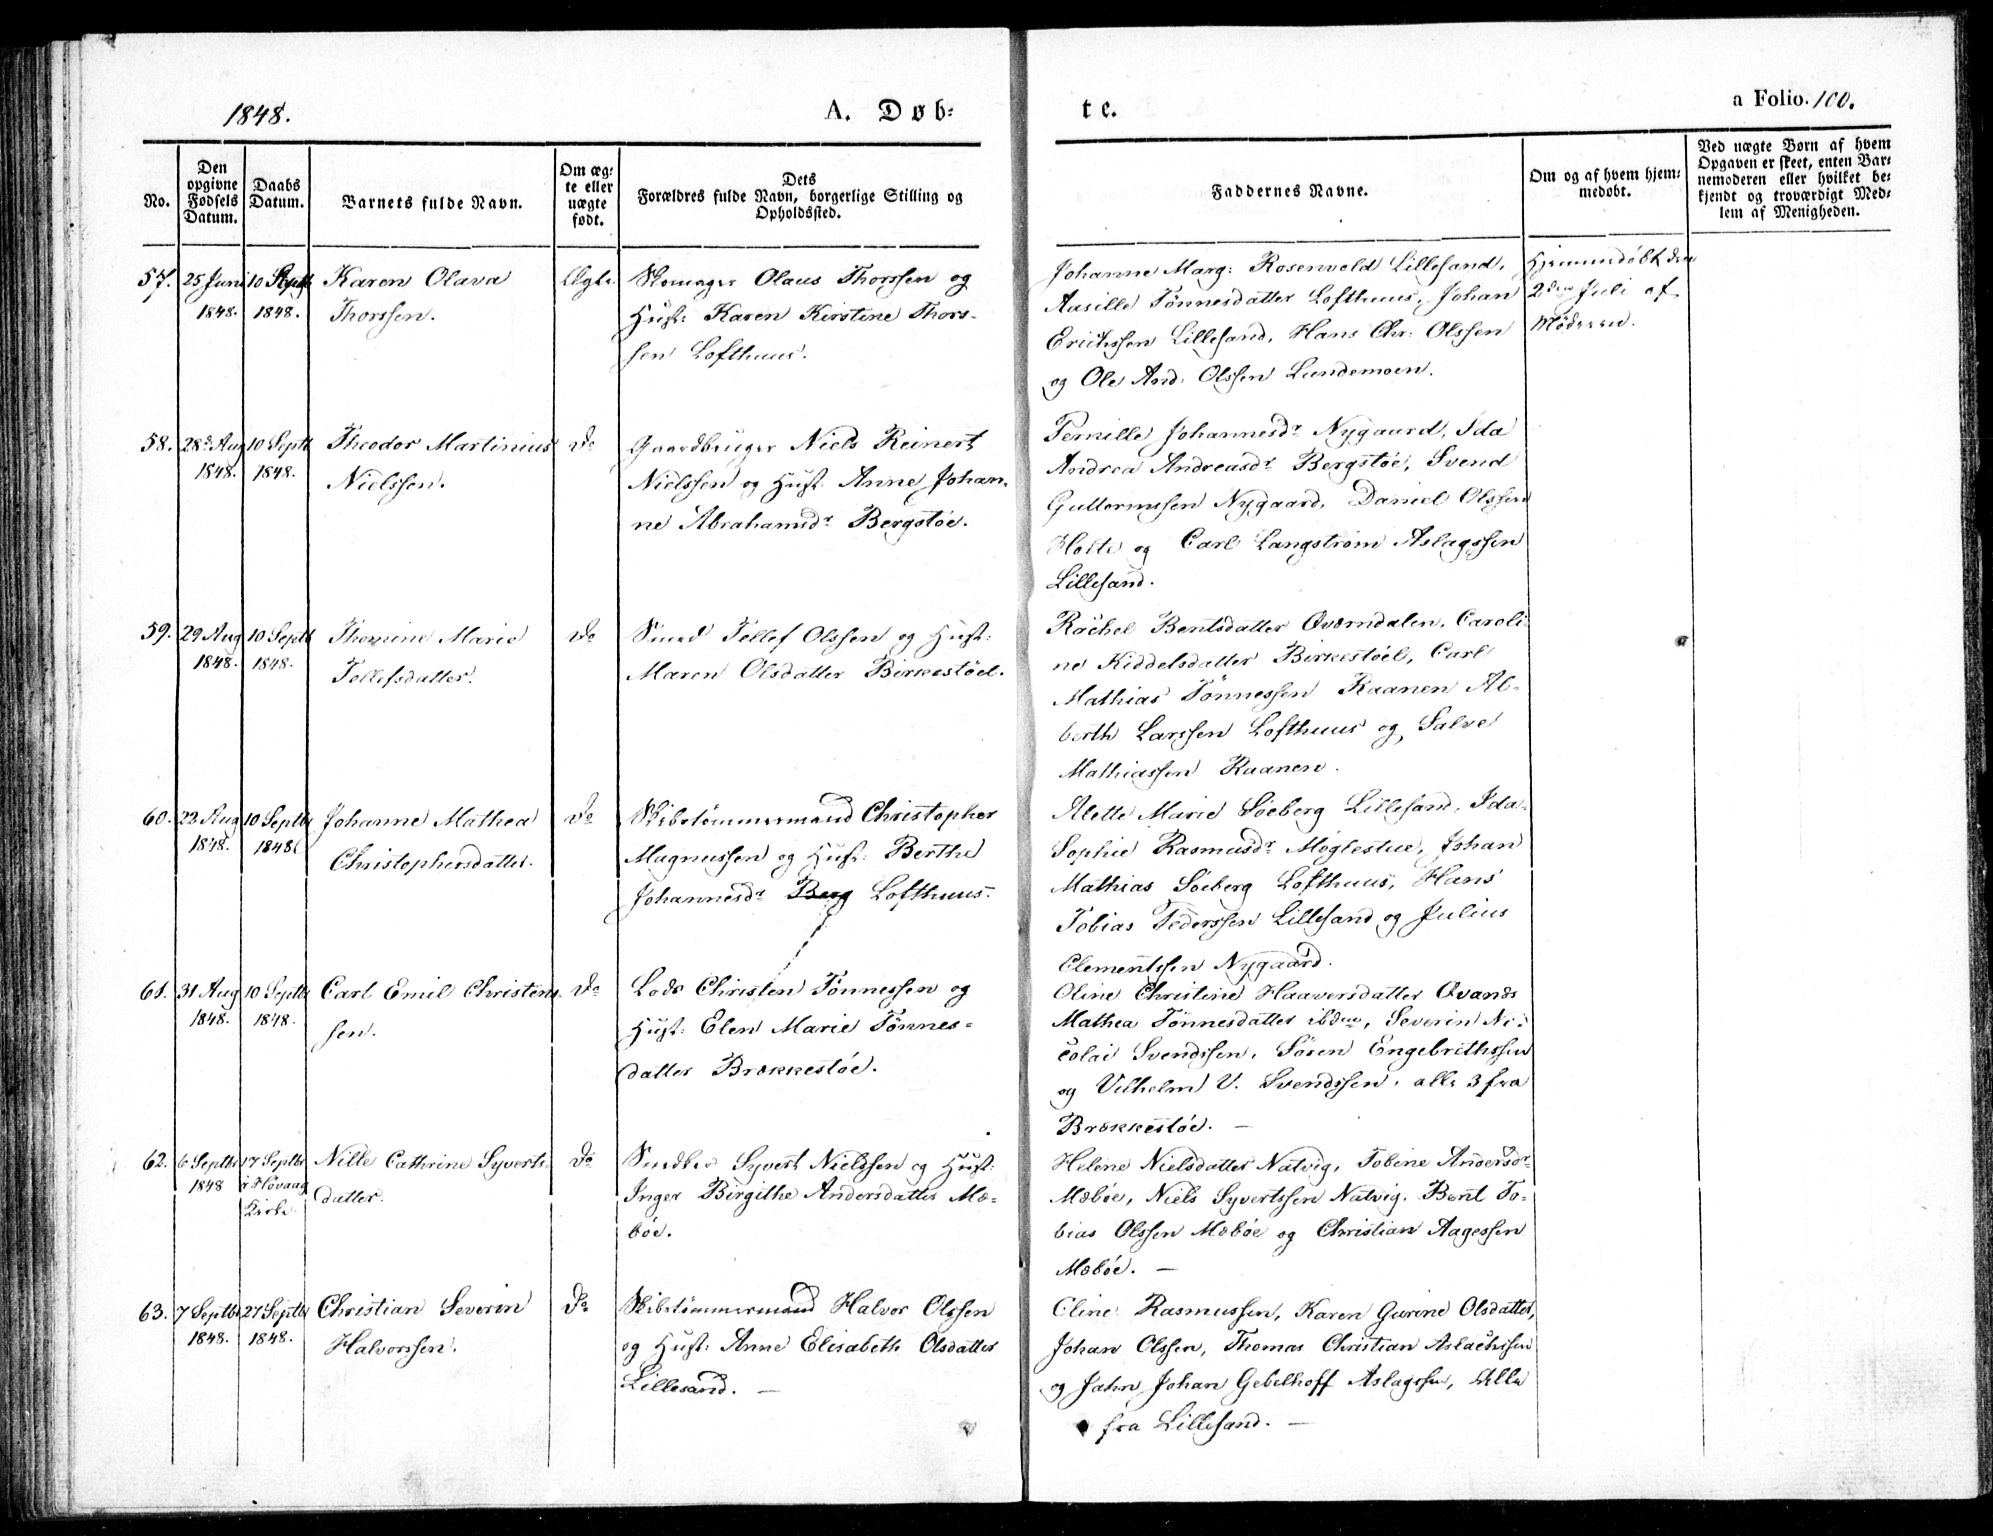 1848.
A. Døb-
te.
a Folio. 100.
No.
Den opgivne Fødsels Datum.
Daabs Datum.
Barnets fulde Navn.
Om ægte eller uægte født.
Dets
Forældres fulde Navn, borgerlige Stilling og
Opholdssted.
Faddernes Navne.
Om og af hvem hjem-
medøbt.
Ved uægte Børn af hvem
Opgaven er skeet, enten Bar-
nemoderen eller hvilket be-
kjendt og troværdigt Med-
lem af Menigheden.
57. 25 Juni 1848. 10 Septb 1848.
Karen Olava
Thorssen.
Ægte.
Skomager Olaus Thorssen og
Hust: Karen Kirstine Thors-
sen Lofthuus.
Johanne Marg: Rosenvold Lillesand,
Aasille Tönnesdatter Lofthuus, Johan
Erichssen Lillesand, Hans Chr: Olssen
og Ole And: Olssen Lundemoen.
Hjemmedöbt den
2den Juli af
Moderen.
58. 28de Aug 1848. 10 Septb 1848.
Theodor Martinius
Nielssen.
Do
Gaardbruger Niels Reinert
Nielssen og Hust: Anne Johan-
ne Abrahamsdr Bergstöe.
Pernille Johannesdr Nygaard, Ida
Andrea Andreasdr Bergstöe, Svend
Guttormssen Nygaard, Daniel Olssen
Holte og Carl Langström Aslagssen
Lillesand.
59. 29 Aug 1848. 10 Septb 1848.
Thomine Marie
Tellefsdatter.
Do
Smed Tellef Olssen og Hust:
Maren Olsdatter Birkestöel.
Rachel Bentsdatter Qværndalen, Caroli-
ne Kiddelsdatter Birkestöel, Carl
Mathias Tönnessen Kaanen Al-
berth Larssen Lofthuus og Salve
Mathiassen Kaanen.
60. 22 Aug 1848. 10 Septbr 1848
Johanne Mathea
Christophersdatter.
Do
Skibstömmermand Christopher
Magnussen og Hust: Berthe
Johannesdr Berg Lofthuus.
Alette Marie Söeberg Lillesand, Ida
Sophie Rasmusdr Möglestue, Johan
Mathias Söeberg Lofthuus, Hans
Tobias Pederssen Lillesand og Julius
Clementssen Nygaard.
61. 31 Aug 1848. 10 Septbr 1848.
Carl Emil Christens-
sen.
Do
Lods Christen Tönnessen og
Hust: Elen Marie Tönnes-
datter Brækkestöe.
Oline Christine Haaversdatter Qvands
Mathea Tönnesdatter ibdm, Severin Ni-
colai Svendssen, Sören Engebrithssen
og Vilhelm V. Svendssen, alle 3 fra
Brækkestöe. —
62. 6 Septbr 1848 17 Septbr i Hövaag Kirke.
Nille Cathrine Syverts-
datter.
Do
Snedker Syvert Nielssen og Hust:
Inger Birgithe Andersdatter Mæ-
böe.
Helene Nielsdatter Natvig, Tobine Andersdr
Mæböe, Niels Syvertssen Natvig, Bent To-
bias Olssen Mæböe og Christian Aagessen
Mæböe. —
63. 7 Septbr 1848. 27 Septbr 1848.
Christian Severin
Halvorssen.
Do
Skibstömmermand Halvor Olssen
og Hust: Anne Elisabeth Olsdatter
Lillesand. —
Cline Rasmussen, Karen Gurine Olsdatter,
Johan Olssen, Thomas Christian Aslachssen
og Jahn Johan Gebelhoff Aslagssen, Alle
fra Lillesand. —